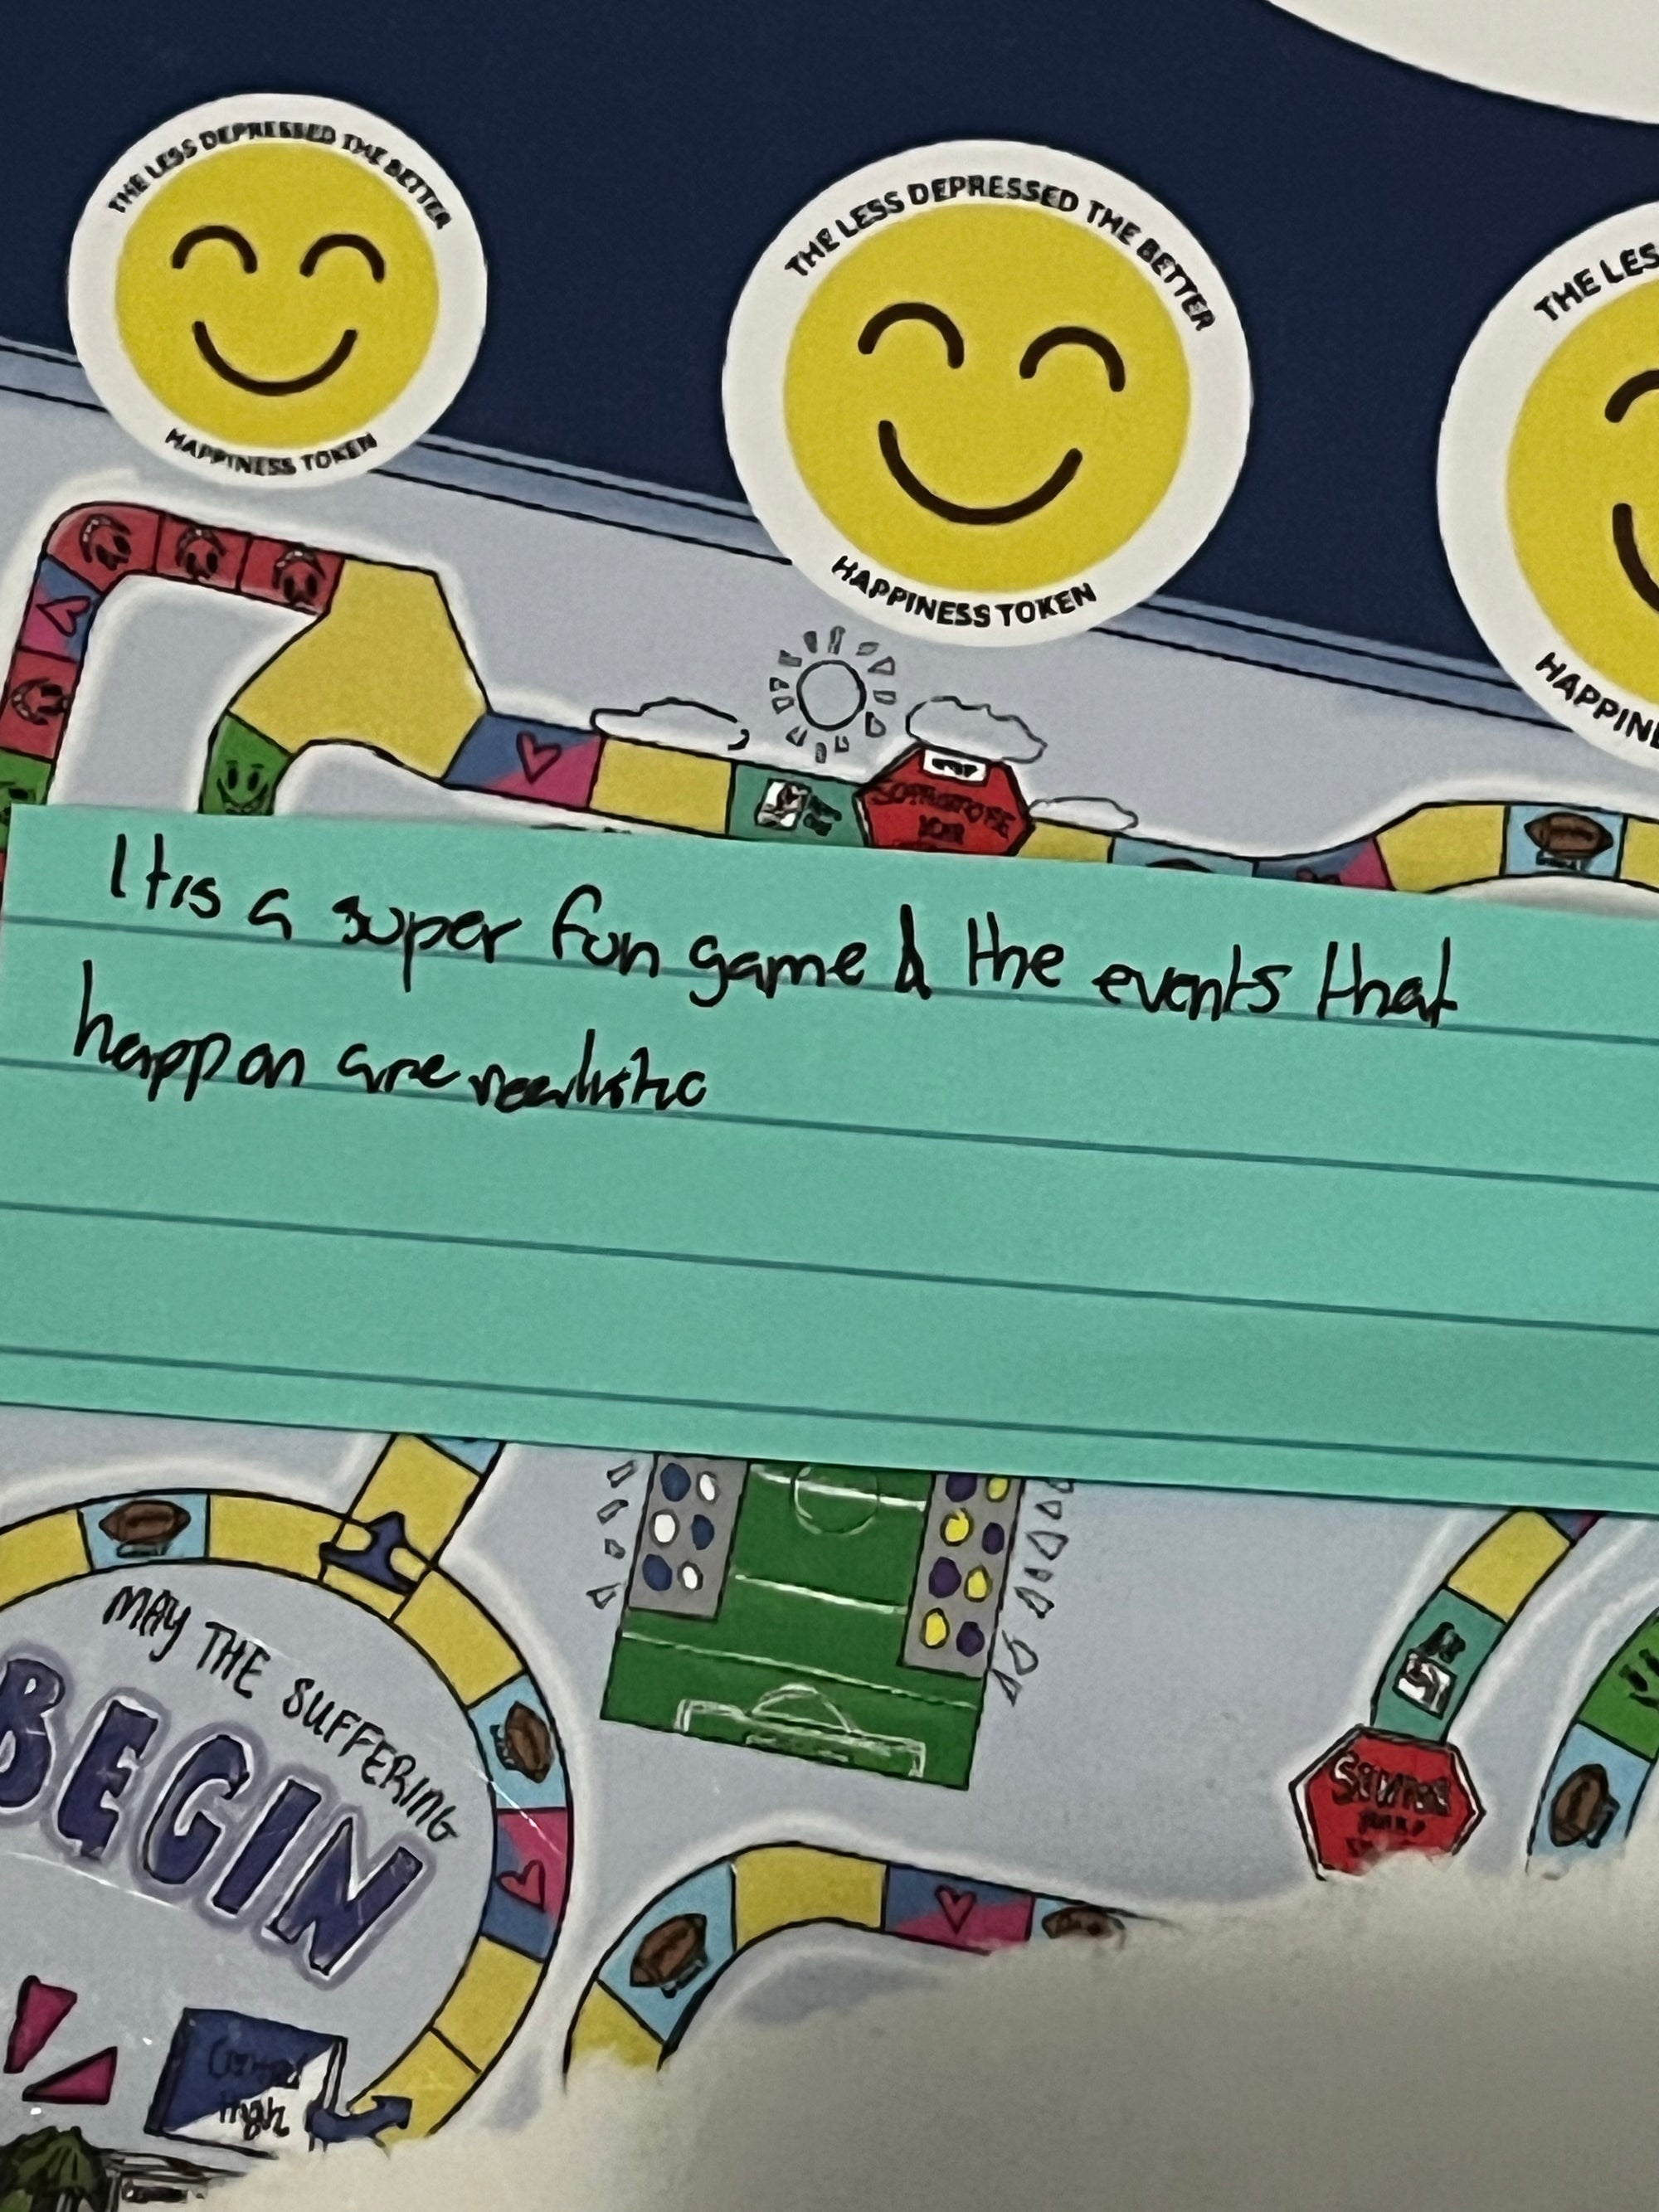 THE LESS DEPRESSED THE BETTER
HAPPINESS TOKEN
THE LESS DEPRESSED THE BETTER
HAPPINESS TOKEN
THE LES
HAPPIN
STOP
SOPHOMORE
YEAR
It is a super fun game & the events that
happen are realistic
MAY THE SUFFERING
BEGIN
Central
High